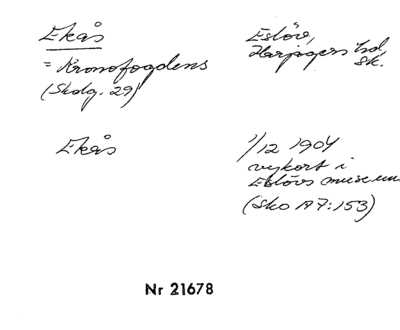 Ekås
= Kronofogdens
(Skolg. 29)
Eslöv,
Harjagers hd,
Sk.
Ekås
1/12 1904
vykort i
Eslövs museum
(Sko A7:153)
Nr 21678